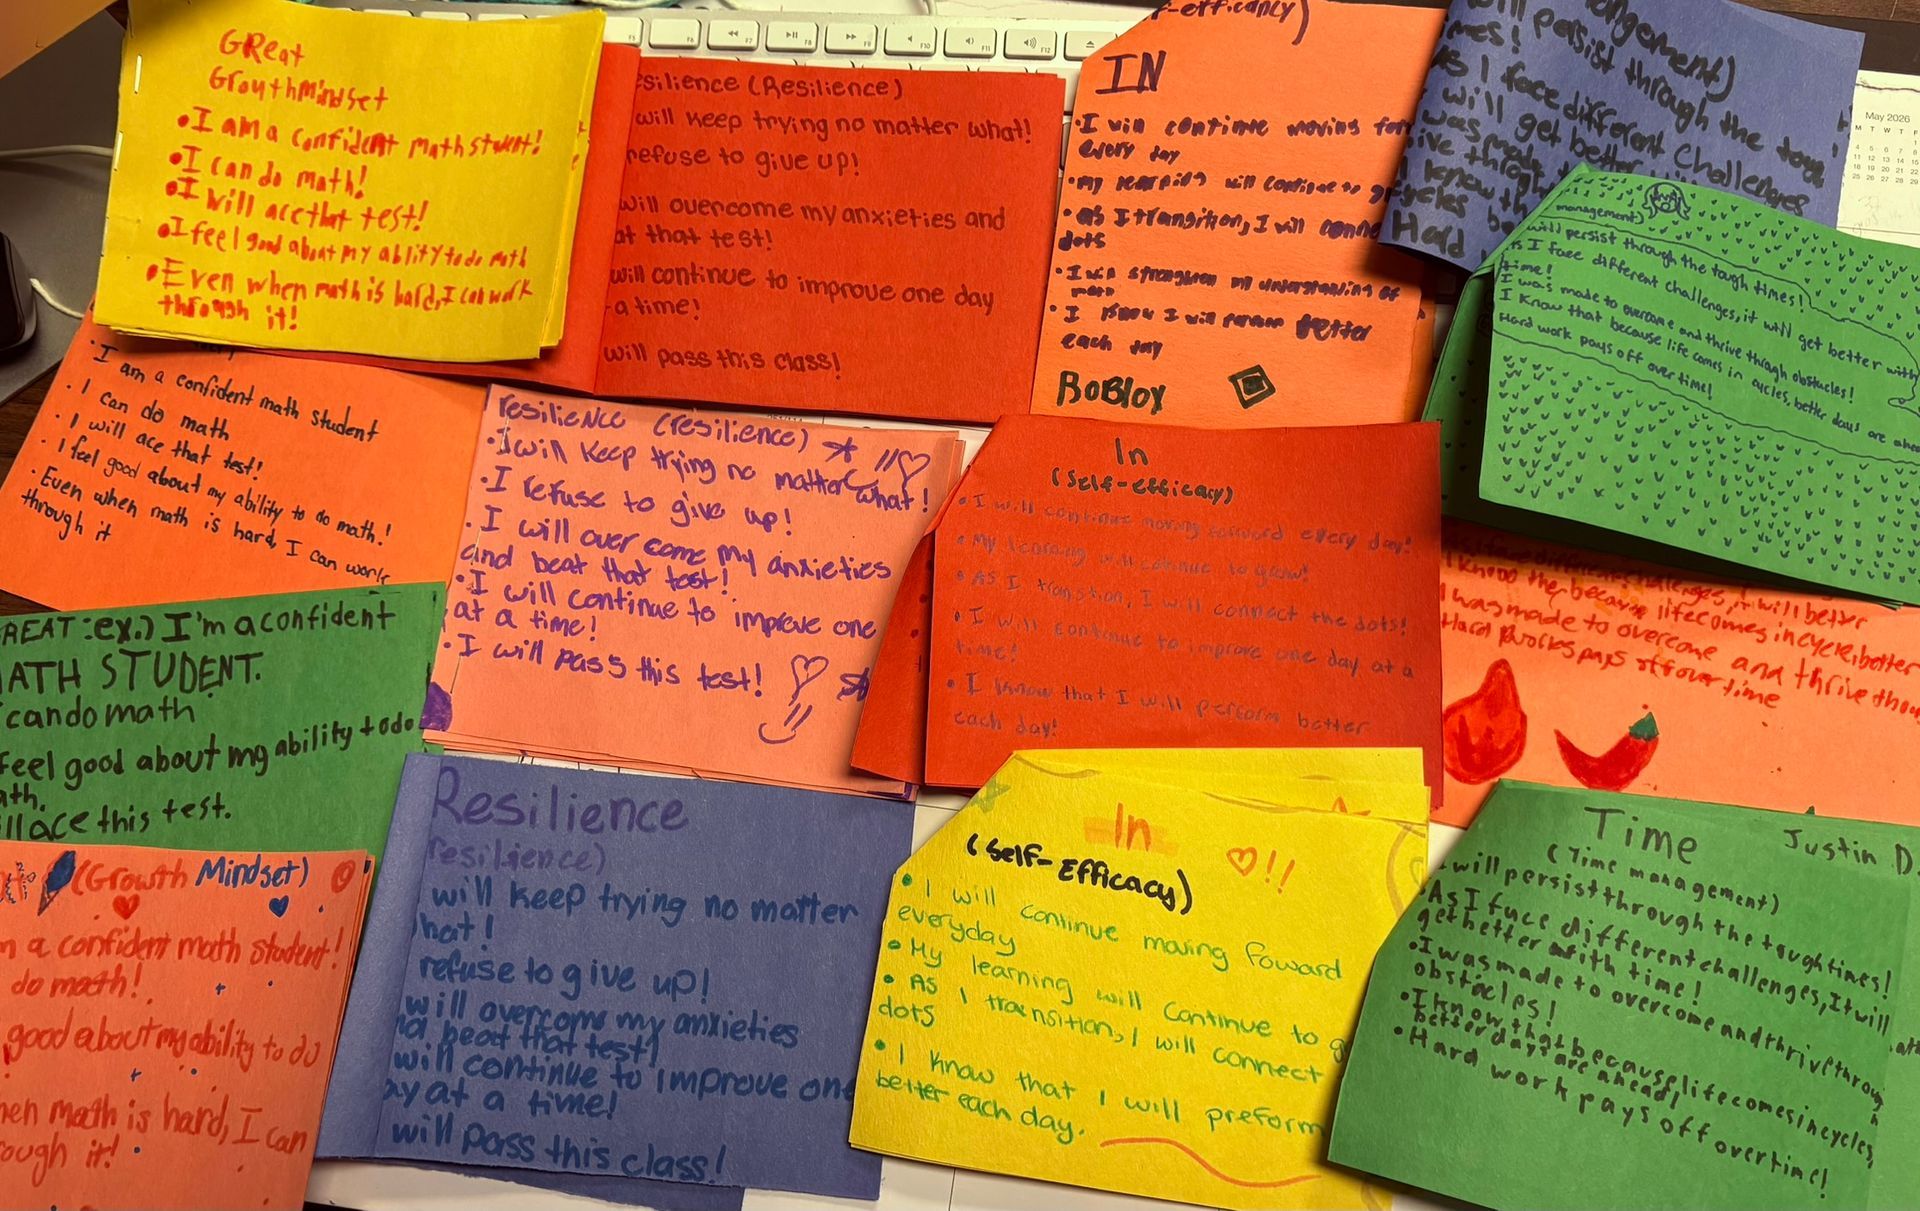 GReat
GrouthMindset
•I am a confident math student!
•I can do math!
•I will ace that test!
•I feel good about my ability to do math
•Even when math is hard, I can work
through it!
silience (Resilience)
will keep trying no matter what!
refuse to give up!
will overcome my anxieties and
at that test!
will continue to improve one day
a time!
will pass this class!
f-efficancy)
IN
•I will continue moving for
every day
•My learning will continue to g
•as I transition, I will conne
dots
•I will strengthen my understanding of
math
•I know I will perform better
each day
RoBlox
ngement)
ill persist through the tough
mes!
As I face different Challenges
will get better
was made
ive through
I know th
cycles be
Hard
May 2026
management)
will persist through the tough times!
As I face different challenges, it will get better with
time!
I was made to overcome and thrive through obstacles!
I know that because life comes in cycles, better days are ahea
Hard work pays off over time!
• I am a confident math student
• I can do math
• I will ace that test!
• I feel good about my ability to do math!
• Even when math is hard, I can work
through it
resilience (resilience)
•I will keep trying no matter what!
•I refuse to give up!
•I will over come my anxieties
and beat that test!
•I will continue to improve one
at a time!
•I will pass this test!
In
(Self-efficacy)
•I will continue moving forward every day!
•My learning will continue to grow!
•As I transtion, I will connect the dots!
•I will continue to improve one day at a
time!
•I know that I will perform better
each day!
I know the because life comes in cycle, better
I was made to overcome and thrive thou
Hard works pays off over time
REAT :ex.) I'm a confident
ATH STUDENT.
can do math
feel good about my ability to do
ath.
ill ace this test.
(Growth Mindset)
m a confident math student!
do math!
good about my ability to do
hen math is hard, I can
rough it!
Resilience
resilience)
will keep trying no matter
hat!
refuse to give up!
will overcome my anxieties
nd beat that test!
will continue to improve one
ay at a time!
will pass this class!
In
(Self-Efficacy)
!!
•I will continue moving foward
everyday
•My learning will continue to g
•As I transition, I will connect
dots
•I know that I will preform
better each day.
Time
Justin D.
(Time management)
will persist through the tough times!
•As I face different challenges, It will
get better with time!
•I was made to overcome and thrive throug
obstacles!
•I know that because life comes in cycles,
better days are ahead!
•Hard work pays off over time!